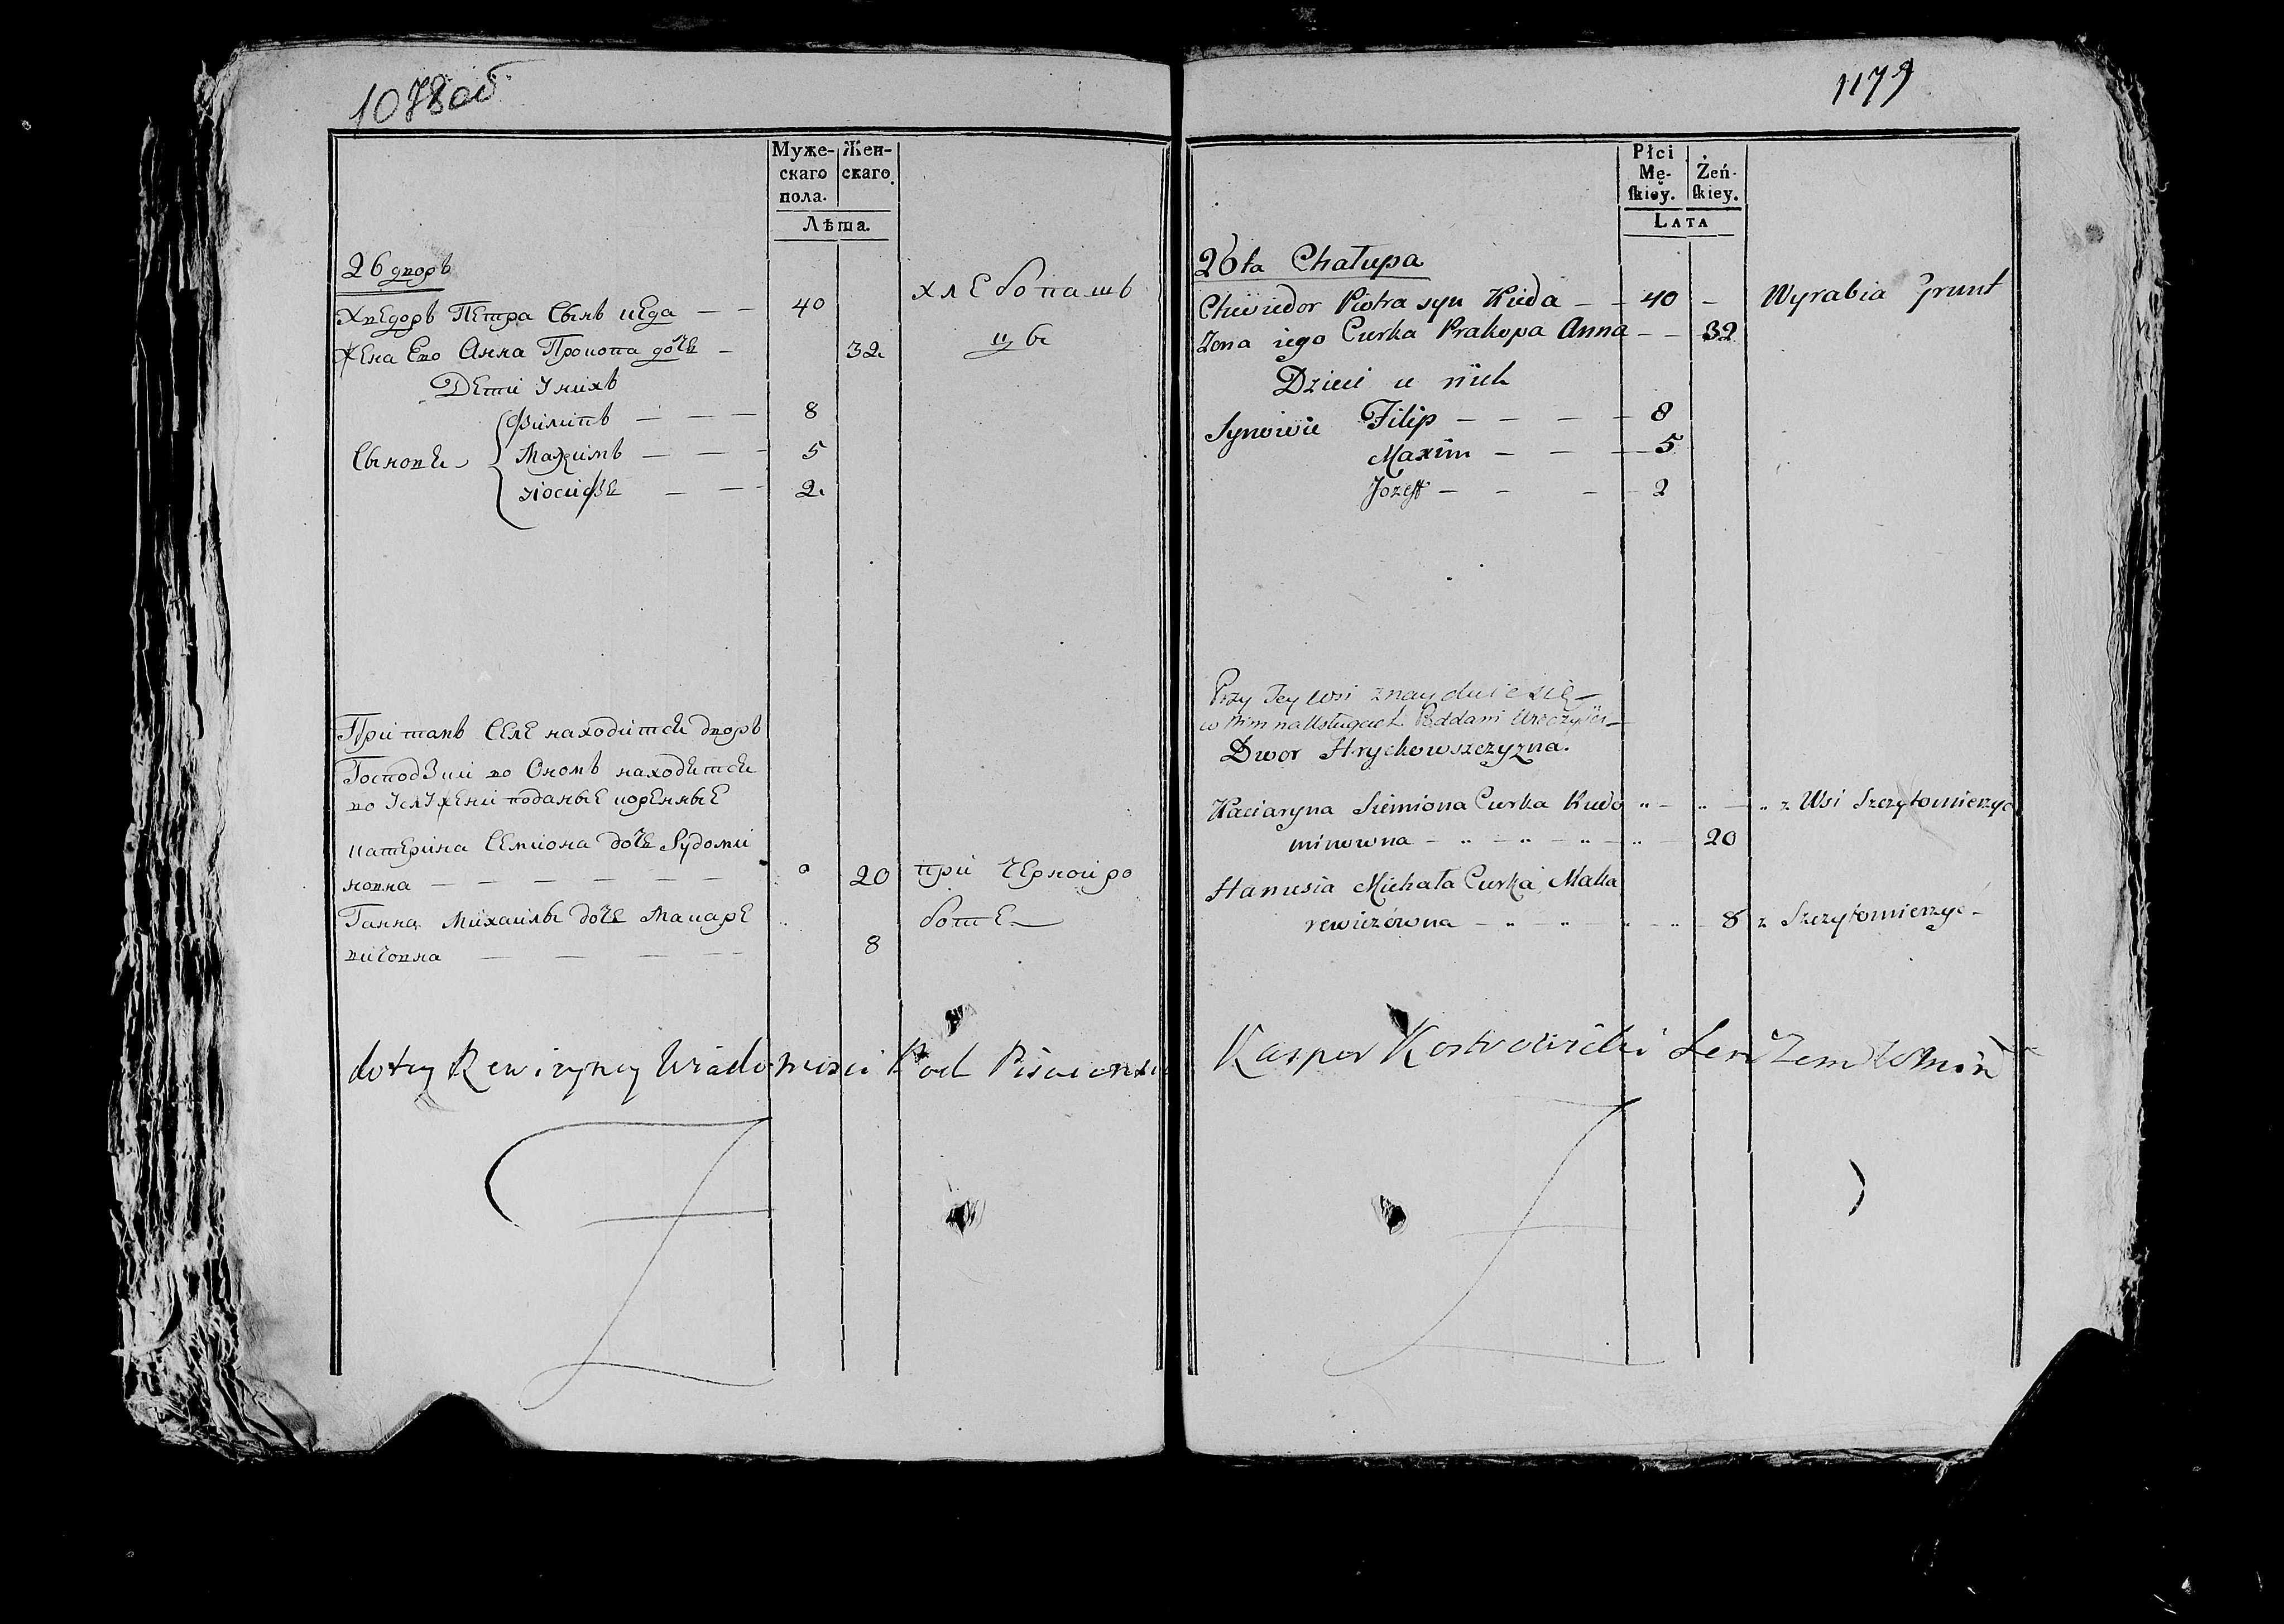 1078об
Муже- Жен-
скаго скаго
пола.
Лѣта.
26 дворъ
Хведоръ Петра Сынъ кеда — — 40 хлебопаш
Жена Ево Анна Прокопа дочь — 32 цы
Дети У нихъ
Филипъ — — — 8
Сыновья Макзимъ — — — 5
Иосифъ — — — 2
При томъ Селе находится дворъ
Господзкий во Ономъ находятся
во Услужении поданые коренные
катерина Семиона дочь
новна — — — — — — 20 при черной ро
Ганна Михайлы дочь Макаре боте
вичовна — — — — 8
do tey Rewizyney Wiadomosci Pod Pisuiemsie
1179
Płci
Mę- Żeń-
ſkiey. ſkiey.
LATA
26ta Chałupa
Chwiedor Piotra syn Kieda — — 40 — Wyrabia Grunt
Zona iego Curka Prakopa Anna — — 32
Dzieci u nich
Synowie Filip — — — — 8
Maxim — — — 5
Jozeff — — — 2
Przy Tey Wsi znayduie się
w nim na Usługach Poddani
Dwor Hrychowszczyzna.
Kaciaryna Siemiona Curka Rudo " — " — " z Wsi Szczytomierzyc
minowna — " — " — " — " — 20
Hanusia Michała Curka Maka
rewiczówna — " — " — — " — 8 z Szczytomierzyc —
Kasper Kostrowicki